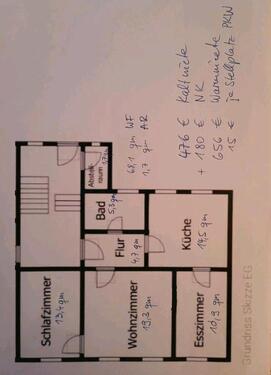 476 € Kaltmiete
+ 180 € NK
656 € Warmmiete
15 € je Stellplatz PKW
68,1 qm WF
1,7 qm AR
Abstell
raum
1,7 qm
Bad
5,3 qm
Flur
4,7 qm
Küche
14,5 qm
Schlafzimmer
13,4 qm
Wohnzimmer
19,3 qm
Esszimmer
10,9 qm
Grundriss Skizze EG